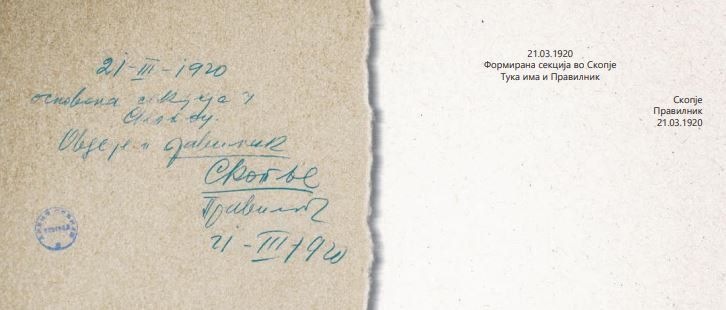 21-III-1920
основана секција у
Скопљу.
Овде је и правилник
Скопље
Правилник
21-III-1920
21.03.1920
Формирана секција во Скопје
Тука има и Правилник
Скопје
Правилник
21.03.1920